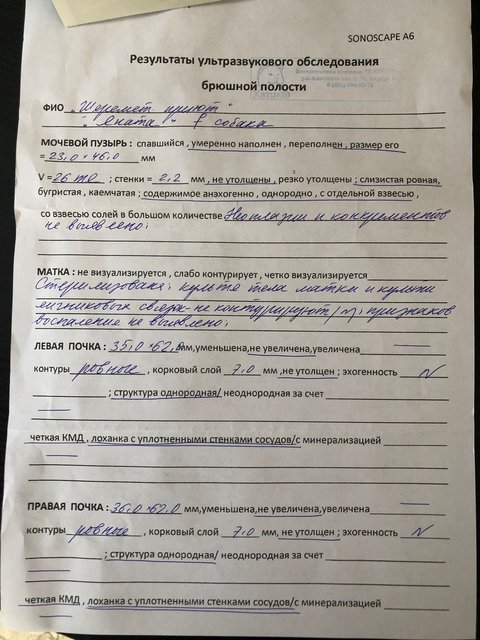 SONOSCAPE A6
Результаты ультразвукового обследования
брюшной полости
ФИО "Шеремет. приют"
"Яната" ♀ собака
МОЧЕВОЙ ПУЗЫРЬ : спавшийся , умеренно наполнен , переполнен , размер его
= 23,0 × 46,0 мм
V = 26 ml ; стенки = 2,2 мм , не утолщены , резко утолщены ; слизистая ровная,
бугристая , каемчатая ; содержимое анэхогенно , однородно , с отдельной взвесью ,
со взвесью солей в большом количестве Неоплазии и конкрементов
не выявлено;
МАТКА : не визуализируется , слабо контурирует , четко визуализируется
Стерилизована; культе тела матки и культи
яичниковых связок не контурируют / n; признаков
воспаление не выявлено;
ЛЕВАЯ ПОЧКА : 35,0 × 62,0 мм,уменьшена,не увеличена,увеличена
контуры ровные , корковый слой 7,0 мм ,не утолщен ; эхогенность N
; структура однородная/ неоднородная за счет
четкая КМД , лоханка с уплотненными стенками сосудов/с минерализацией
ПРАВАЯ ПОЧКА : 36,0 × 62,0 мм,уменьшена,не увеличена,увеличена
контуры ровные , корковый слой 7,0 мм, не утолщен ; эхогенность N
; структура однородная/ неоднородная за счет
четкая КМД , лоханка с уплотненными стенками сосудов/с минерализацией